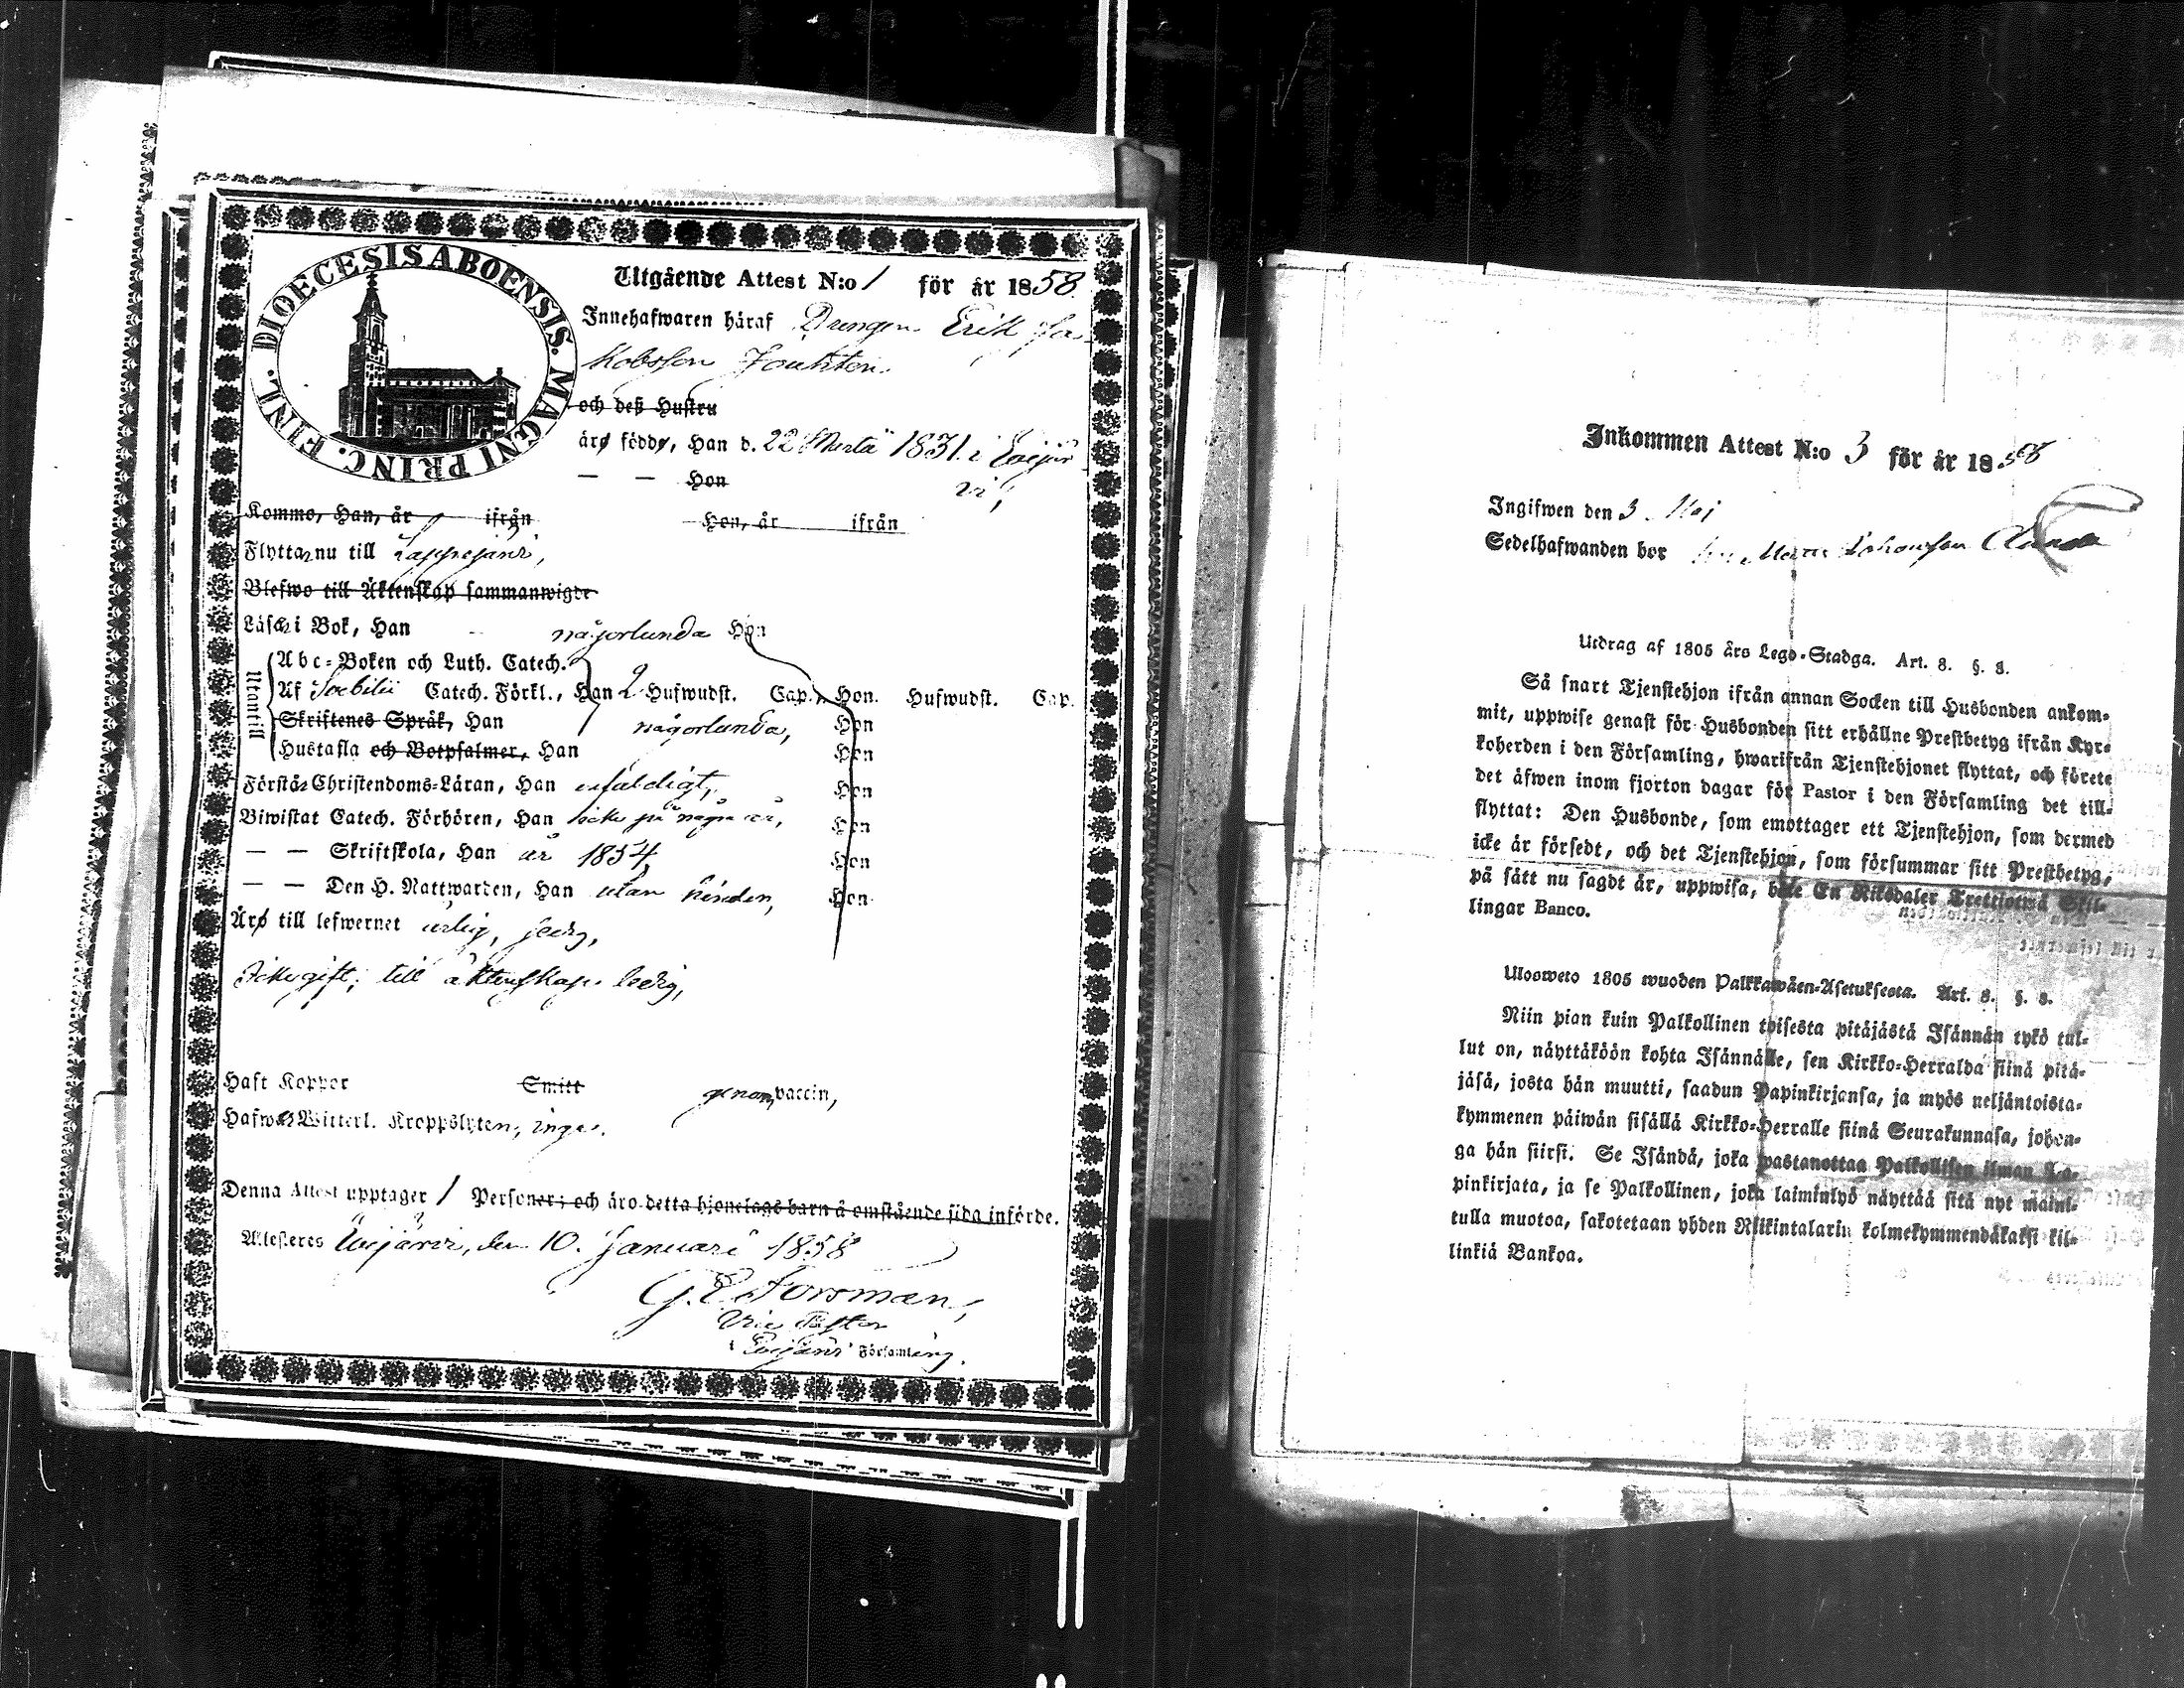 DIOECESIS ABOENSIS. MAGNI PRINC. FINL.
Utgående Attest N:o 1 för år 1858.
Innehafwaren häraf Drengen Erik Ja-
kobsson
och deß Hustru
äro födde, Han d. 22 Martii 1831. i
— — Hon
Komma, Han, år ifrån Hon, år ifrån
Flyttar nu till Lappajärvi,
Blefwo till Äktenskap sammanwigde
Läser i Bok, Han någorlunda Hon
Utantill
Abc-Boken och Luth. Catech.
Af Svebilii Catech. Förkl., Han 2 Hufwudst. Cap., Hon. Hufwudst. Cap.
Skriftenes Språk, Han någorlunda, Hon
Hustafla och Botpsalmer, Han Hon
Förstår Christendoms-Läran, Han enfaldigt, Hon
Biwistat Catech. Förhören, Han icke på några år, Hon
— — Skriftskola, Han år 1854, Hon
— — Den H. Nattwarden, Han utan hinder, Hon
Äro till lefwernet ärlig,
Icke gift; till äktenskap ledig,
Haft Koppor Smitt genom vaccin,
Hafwa Witterl. Kroppslyten, inga.
Denna Attest upptager 1 Personer; och äro detta hjonelags barn å omstående sida införde.
Attesteres den 10. Januari 1858
G. E. Forsman,
Vice Pastor
i Församling.
Inkommen Attest N:o 3 för år 1858
Ingifwen den 3 Maj
Sedelhafwanden bor
Utdrag af 1805 års Lego-Stadga. Art. 8. §. 8.
Så snart Tjenstehjon ifrån annan Socken till Husbonden ankom-
mit, uppwise genast för Husbonden sitt erhållne Prestbetyg ifrån Kyr-
koherden i den Församling, hwarifrån Tjenstehjonet flyttat, och förete
det äfwen inom fjorton dagar för Pastor i den Församling det till-
flyttat: Den Husbonde, som emottager ett Tjenstehjon, som dermed
icke är försedt, och det Tjenstehjon, som försummar sitt Prestbetyg,
på sätt nu sagdt är, uppwisa, böte En Riksdaler Trettiotwå Skil-
lingar Banco.
Ulosweto 1805 wuoden Palkkawäen-Asetuksesta. Art. 8. §. 8.
Niin pian kuin Palkollinen toisesta pitäjästä Isännän tykö tul-
lut on, näyttäköön kohta Isännälle, sen Kirkko-Herralda siinä pitä-
jäsä, josta hän muutti, saadun Papinkirjansa, ja myös neljäntoista-
kymmenen päiwän sisällä Kirkko-Herralle siinä Seurakunnasa, johon-
ga hän siirsi. Se Isändä, joka wastanottaa Palkollisen ilman Pa-
pinkirjata, ja se Palkollinen, joka laiminlyö näyttää sitä nyt maini-
tulla muotoa, sakotetaan yhden Riikintalarin kolmekymmendäkaksi kil-
linkiä Bankoa.